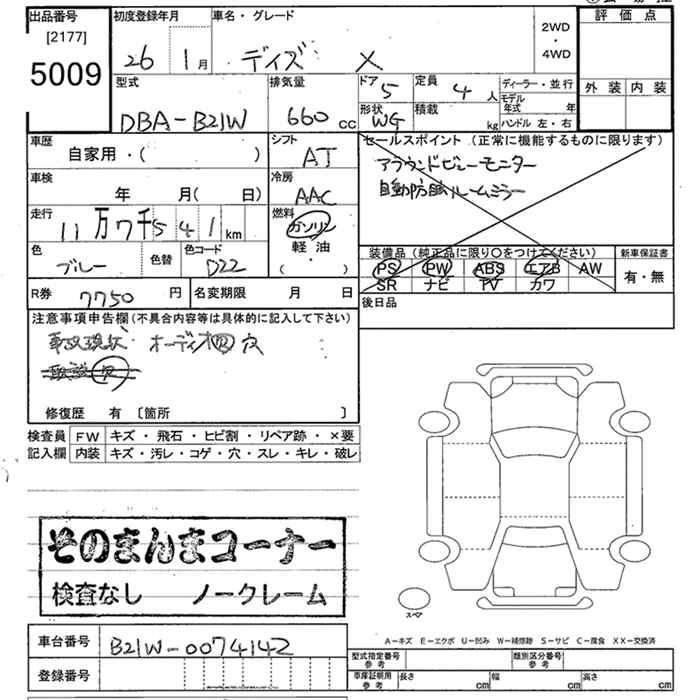 出品番号
[2177]
5009
初度登録年月
26 1月
車名・グレード
デイズ X
2WD
・
4WD
評価点
外装 内装
型式
DBA-B21W
排気量
660 cc
ドア 5
形状 WG
定員 4 人
積載 kg
ディーラー・並行
モデル年式 年
ハンドル 左・右
車歴
自家用・( )
シフト
AT
セールスポイント (正常に機能するものに限ります)
アラウンドビューモニター
自動防眩ルームミラー
車検
年 月( 日)
冷房
AAC
走行
11万7千541km
燃料
ガソリン
軽・油
・
( )
色
ブルー
色替
色コード
D22
装備品 (純正品に限り○をつけてください)
PS PW ABS エアB AW
SR ナビ TV カワ
新車保証書
有・無
R券 7750 円
名変期限 月 日
後日品
注意事項申告欄(不具合内容等は具体的に記入して下さい)
現状 オーディオ 穴
修復歴 有 〔箇所 〕
検査員 FW キズ・飛石・ヒビ割・リペア跡・×要
記入欄 内装 キズ・汚レ・コゲ・穴・スレ・キレ・破レ
そのまんまコーナー
検査なし ノークレーム
スペア
A-キズ E-エクボ U-凹み W-補修跡 S-サビ C-腐食 XX-交換済
車台番号 B21W-0074142
登録番号
型式指定番号
参考
類別区分番号
参考
車庫証明用
参考
長さ cm 幅 cm 高さ cm